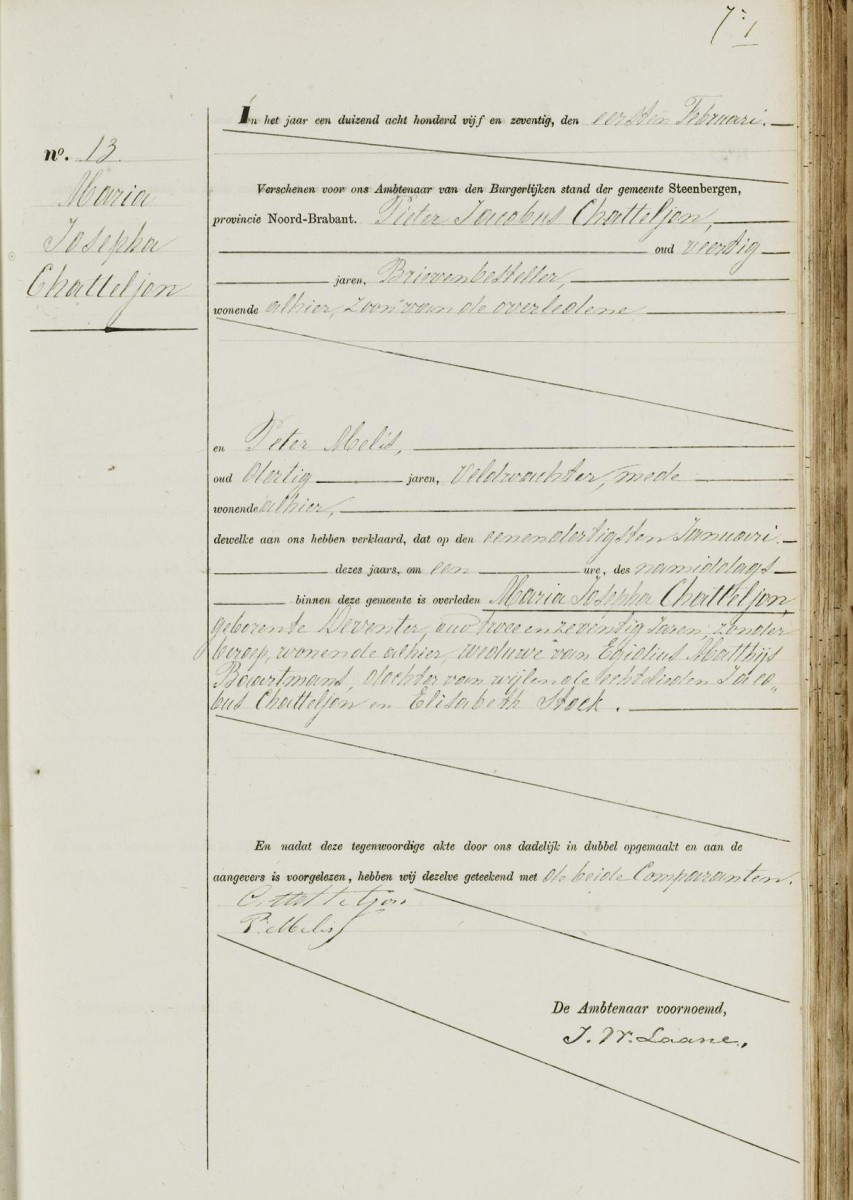 7: 1
In het jaar een duizend acht honderd vijf en zeventig, den eersten Februari.
no. 13.
Maria
Josepha
Chatteljon
Verschenen voor ons Ambtenaar van den Burgerlijken stand der gemeente Steenbergen,
provincie Noord-Brabant. Pieter Jacobus Chatteljon,
oud veertig
jaren, Brievenbesteller,
wonende alhier, zoon van de overledene
en Peter Melis,
oud dertig jaren, veldwachter, mede
wonende alhier,
dewelke aan ons hebben verklaard, dat op den eenendertigsten Januari
dezes jaars, om een ure, des namiddags
binnen deze gemeente is overleden Maria Josepha Chatteljon,
geboren te Deventer, oud twee en zeventig Jaren, zonder
beroep, wonende alhier, weduwe van Egidius Matthijs
Baartmans, dochter van wijlen de Echtelieden Jaco„
bus Chatteljon en Elisabeth Stock.
En nadat deze tegenwoordige akte door ons dadelijk in dubbel opgemaakt en aan de
aangevers is voorgelezen, hebben wij dezelve geteekend met de beide Comparanten.
P. Melis
De Ambtenaar voornoemd,
J. W. Laane.